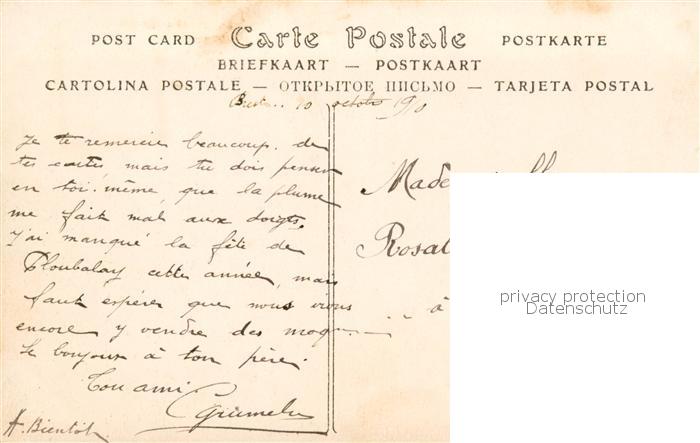 POST CARD Carte Postale POSTKARTE
BRIEFKAART — POSTKAART
CARTOLINA POSTALE — ОТКРЫТОЕ ПИСЬМО — TARJETA POSTAL
10 octobre 1910
Je te remercie beaucoup de
tes cartes, mais tu dois penser
en toi-même, que la plume
me fait mal aux doigts,
j'ai manqué la fête de
Ploubalay cette année, mais
faut espérer que nous irons
encore y vendre des
Le bonjour à ton père.
Ton ami
A Bientôt
Made
Rosal
à
privacy protection
Datenschutz